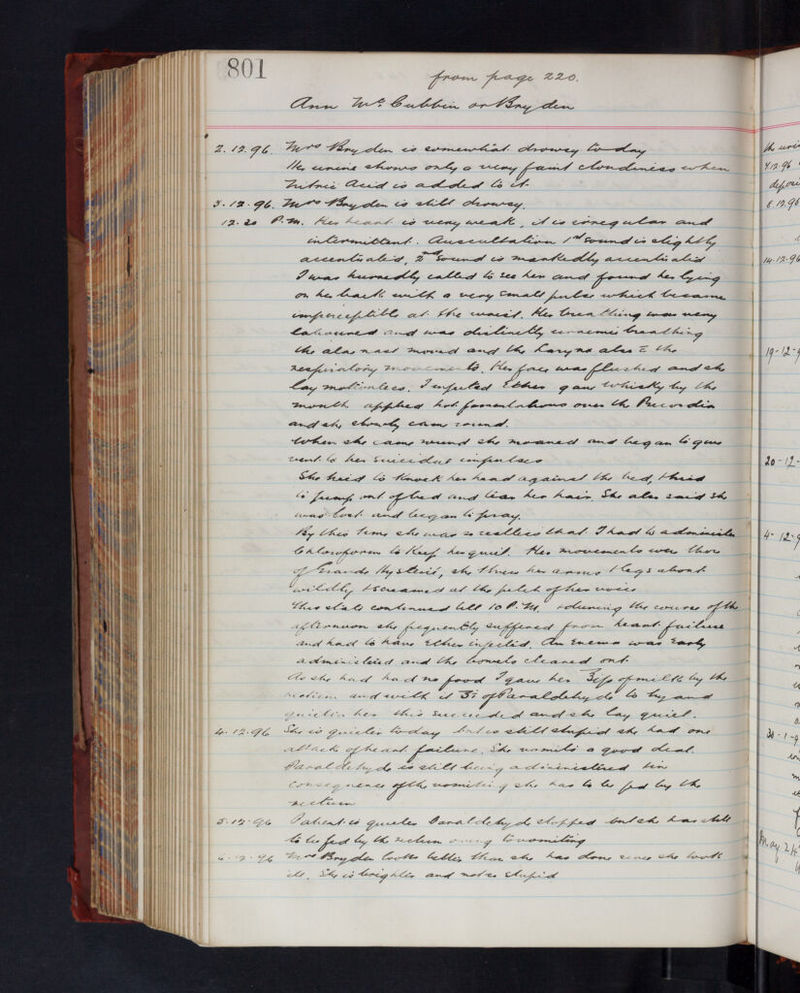 801
from page 220.
Ann McCubbin or Bryden
2.12.96. Mrs Bryden is somewhat drowsy today
Her urine shows only a very faint cloudiness when
Nitric Acid is added to it.
3.12.96. Mrs Bryden is still drowsy.
12.30 P.M. Her heart is very weak, it is irregular and
intermittent. Auscultation 1st sound is slightly
accentuated, 2nd sound is markedly accentuated
I was hurriedly called to see her and found her lying
on her back with a very small pulse which became
imperceptible at the wrist. Her breathing was very
laboured and was distinctly uraemic breathing
the alae nasi moved and the larynx also c the
respiratory movements. Her face was flushed and she
lay motionless. I injected Ether gave whisky by the
mouth applied hot fomentations over the Precordia
and she slowly came round.
When she came round she moaned and began to give
vent to her suicidal impulses
She tried to knock her head against the bed, tried
to jump out of bed and tear her hair. She also said she
was lost and began to pray.
By this time she was so restless that I had to administer
Chloroform to keep her quiet. Her movements were those
of Grande Hysterie, she threw her arms & legs about
wildly & screamed at the pitch of her voice
This state continued till 10 P.M. & during the course of the
afternoon she frequently suffered from heart failure
and had to have Ether injected. An Enema was early
administered and the bowels cleared out.
As she had had no food I gave her of milk by the
rectum and with it ʒi of Paraldehyde to try and
quieten her this succeeded and she lay quiet.
4.12.96 She is quieter today but is still stupid she had one
attack of heart failure. She vomits a good deal.
Paraldehyde is still being administered & in
consequence of the vomiting she has to be fed by the
rectum
5.12.96 Patient is quieter Paraldehyde stopped but she has still
to be fed by the rectum owing to vomiting
6.12.96 Mrs Bryden looks better than she has done since she took
ill. She is brighter and not so stupid
the uri
7.12.96
depos
8.12.96
14.12.96
19-12-9
20-12-
4-12-9
30-1-9
May 24